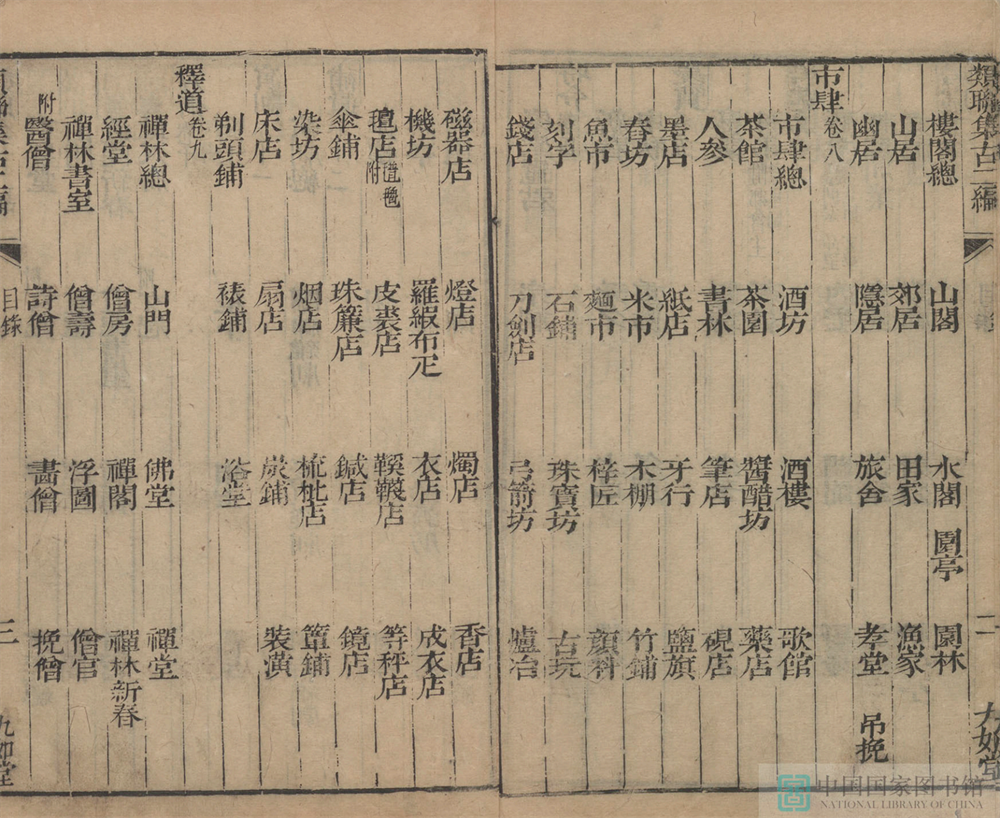 類聯集古二編
樓閣總 山閣 水閣 園亭 園林
山居 郊居 田家 漁家
幽居 隱居 旅舍 孝堂 吊挽
市肆 卷八
市肆總 酒坊 酒樓 歌館
茶館 茶園 醬醋坊 藥店
人參 書林 筆店 硯店
墨店 紙店 牙行 鹽旗
春坊 米市 木棚 竹鋪
魚市 麵市 梓匠 顔料
刻字 石鋪 珠寶坊 古玩
錢店 刀劍店 弓箭坊 爐冶
二
九如堂
磁器店 燈店 燭店 香店
機坊 羅緞布疋 衣店 成衣店
氊店 附 皮裘店 鞋韈店 等秤店
傘鋪 珠簾店 鍼店 鏡店
染坊 烟店 梳枇店 簟鋪
床店 扇店 炭鋪 裝潢
剃頭鋪 裱鋪 浴堂
釋道 卷九
禪林總 山門 佛堂 禪堂
經堂 僧房 禪閣 禪林新春
禪林書室 僧壽 浮圖 僧官
附 醫僧 詩僧 畵僧 挽僧
目錄
三
九如堂
中国国家图书馆
NATIONAL LIBRARY OF CHINA